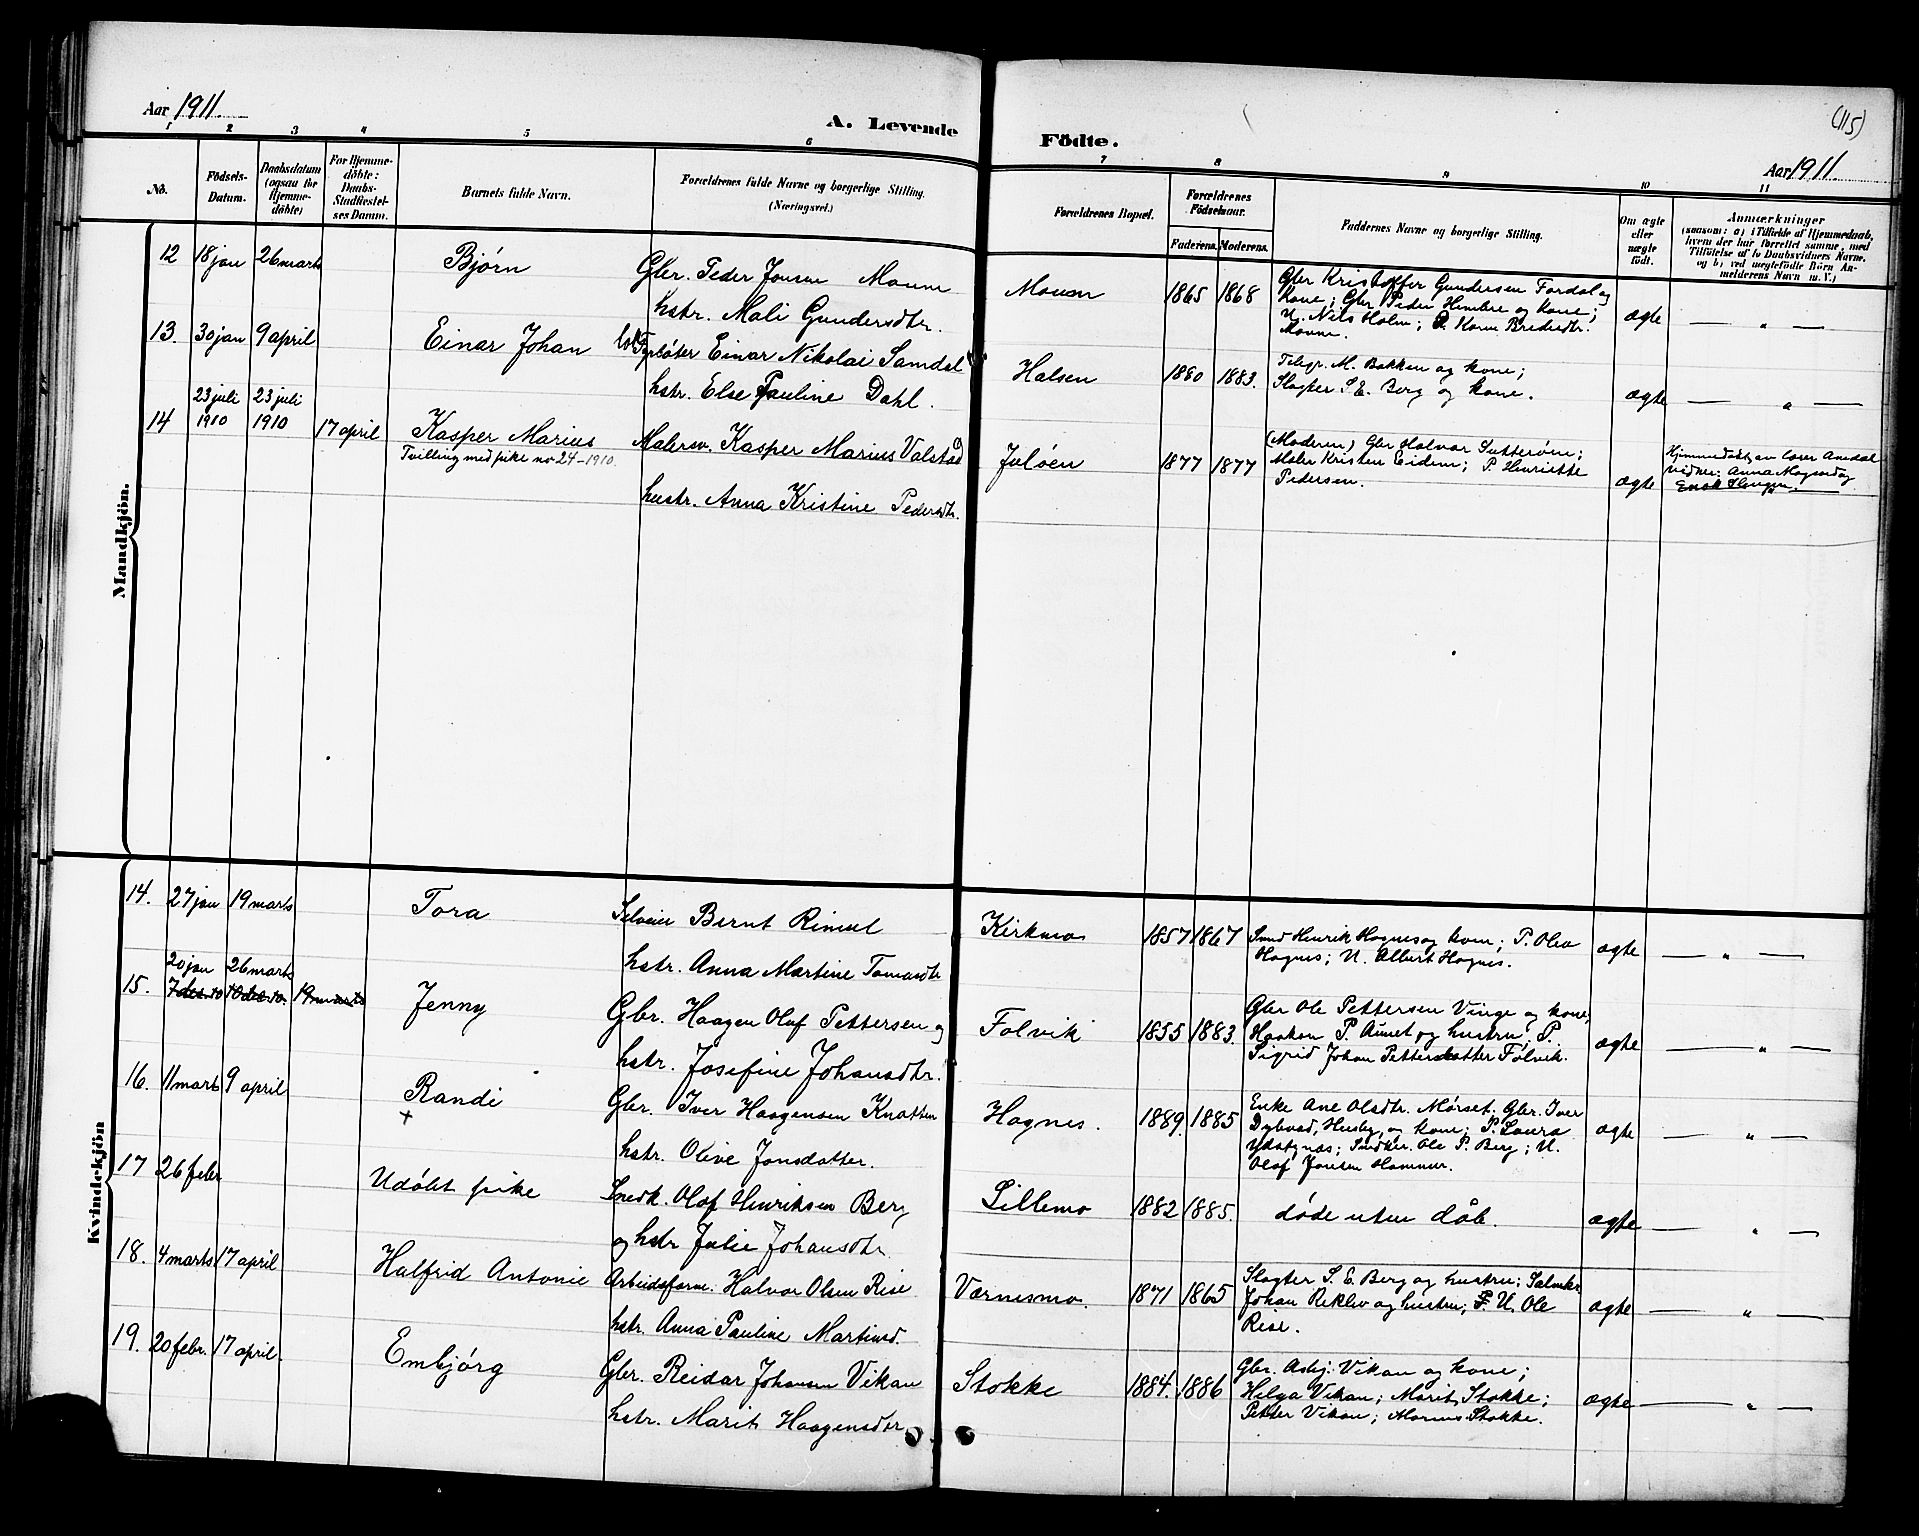 Aar 1911.
A. Levende
Födte.
(115)
Aar 1911
1 2 3 4 5 6
7 8 9 10 11
No.
Födsels-
Datum.
Daabsdatum
(ogsaa for
Hjemme-
döbte)
For Hjemme-
döbte:
Daabs-
Stadfæstel-
ses Datum.
Barnets fulde Navn.
Forældrenes fulde Navne og borgerlige Stilling.
(Næringsvei.)
Forældrenes Bopæl.
Forældrenes
Födselsaar.
Faderens. Moderens.
Faddernes Navne og borgerlige Stilling.
Om ægte
eller
uægte
födt.
Anmærkninger
(saasom: a) i Tilfælde af Hjemmedaab,
hvem der har forrettet samme, med
Tilföielse af to Daabsvidners Navne,
og b) ved uægtefödte Börn An-
melderens Navn m. V.)
Mandkjön.
12 18 jan 26 marts Bjørn Gbr. Peder Jonsen Mæle
hstr. Mali Gundersdtr.
1865 1868 Gbr Kristoffer Gundersen Fordal og
kone; Gbr Peder Hembre og kone;
U. Nils Holm;
ægte — " —
13. 30 jan 9 april Einar Johan Einar Nikolai Samdal
hstr. Else Pauline Dahl.
Halsen 1880 1883. Telegr. M. Bakken og kone;
Slagter S. E. Berg og kone.
ægte — " —
14 23 juli 1910 23 juli 1910 17 april Kasper Marius Malersv. Kasper Marius Valstad
Tvilling med pike no 24-1910.
hustr. Anna Kristine Pedersdtr.
Juløen 1877 1877 (Moderen) Gbr Halvar Sutterøen;
Maler Kristen Eidem; P. Henriette
Pedersen.
ægte Hjemmedøbt av lærer Amdal
vidner: Anna Mogaard og
Kvindekjön
14. 27 jan 19 marts Tora Bernt Rimul
hstr. Anna Martine Tomasdtr
Kirkmo 1857 1867 Smed Henrik Hognes og kone; P. Olea
Hognes; U. Albert Hognes.
ægte — " —
15. 20 jan 26 marts
7 des 10 10 des 10. 19 marts Jenny Gbr. Haagen Olaf Pettersen og
hstr. Josefine Johansdtr.
Folvik 1855 1883. Gbr Ole Pettersen Vinge og kone,
Haakon P. Aunet og hustru; P.
Sigrid Johan Pettersdatter Folvik.
ægte — " —
16. 11 marts 9 april Randi Gbr. Iver Haagensen Knotten
+
hstr. Olive Jonsdatter.
Hognes. 1889. 1885 Enke Ane Olsdtr. Mørset. Gbr. Iver
Dybvad, Husby, og kone; P. Laura
Ydstgnæs; Snedker. Ole P. Berg; U.
Olaf Jonsen Hammer.
ægte — " —
17 26 febr Udøbt pike Snedk. Olaf Henriksen Berg
og hstr Julie Johansdtr.
Lillemo 1882 1885. døde uten dåb.
ægte — " —
18. 4 marts 17 april Halfrid Antonie Arbeidsform. Halvor Olsen Rise
hstr. Anna Pauline Martinsd.
Værnesmo. 1871 1865 Slagter S. E. Berg og hustru;
Johan Reklev og hustru; U. Ole
Rise.
ægte — " —
19. 20 febr. 17 april. Embjørg Gbr. Reidar Johansen Vikan
hstr. Marit Haagensdtr
Stokke 1884. 1886 Gbr. Asbj. Vikan og kone;
Helga Vikan; Marit Stokke;
Petter Vikan; Marius Stokke.
ægte — " —